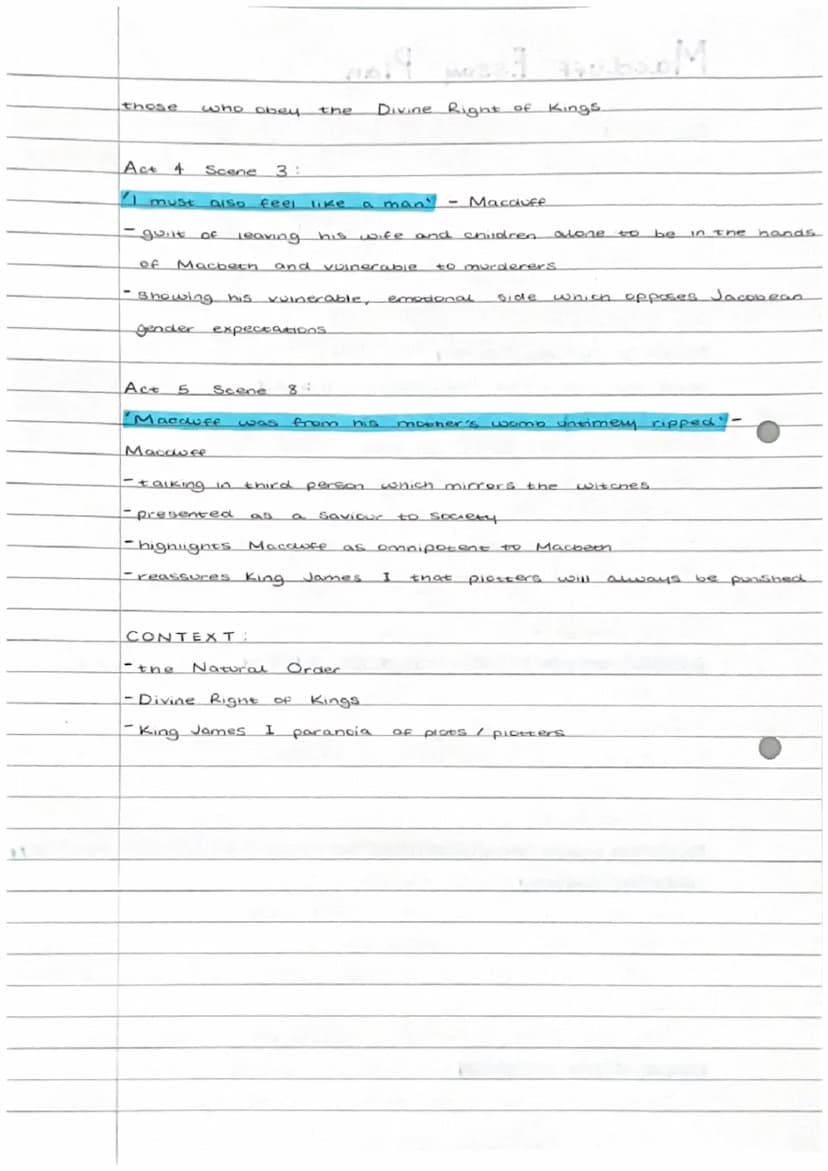 those who obey the Divine Right of Kings
Act 4 Scene 3:
'I must also feel like a man' - Macduff
- guilt of leaving his wife and children alone to be in the hands
of Macbeth and vulnerable to murderers
- showing his vulnerable, emotional side which opposes Jacobean
gender expectations
Act 5 Scene 8:
'Macduff was from his mother's womb untimely ripped' -
Macduff
- talking in third person which mirrors the witches
- presented as a saviour to society
- highlights Macduff as omnipotent to Macbeth
- reassures King James I that plotters will always be punished
CONTEXT:
- the Natural Order
- Divine Right of Kings
- King James I paranoia of plots / plotters